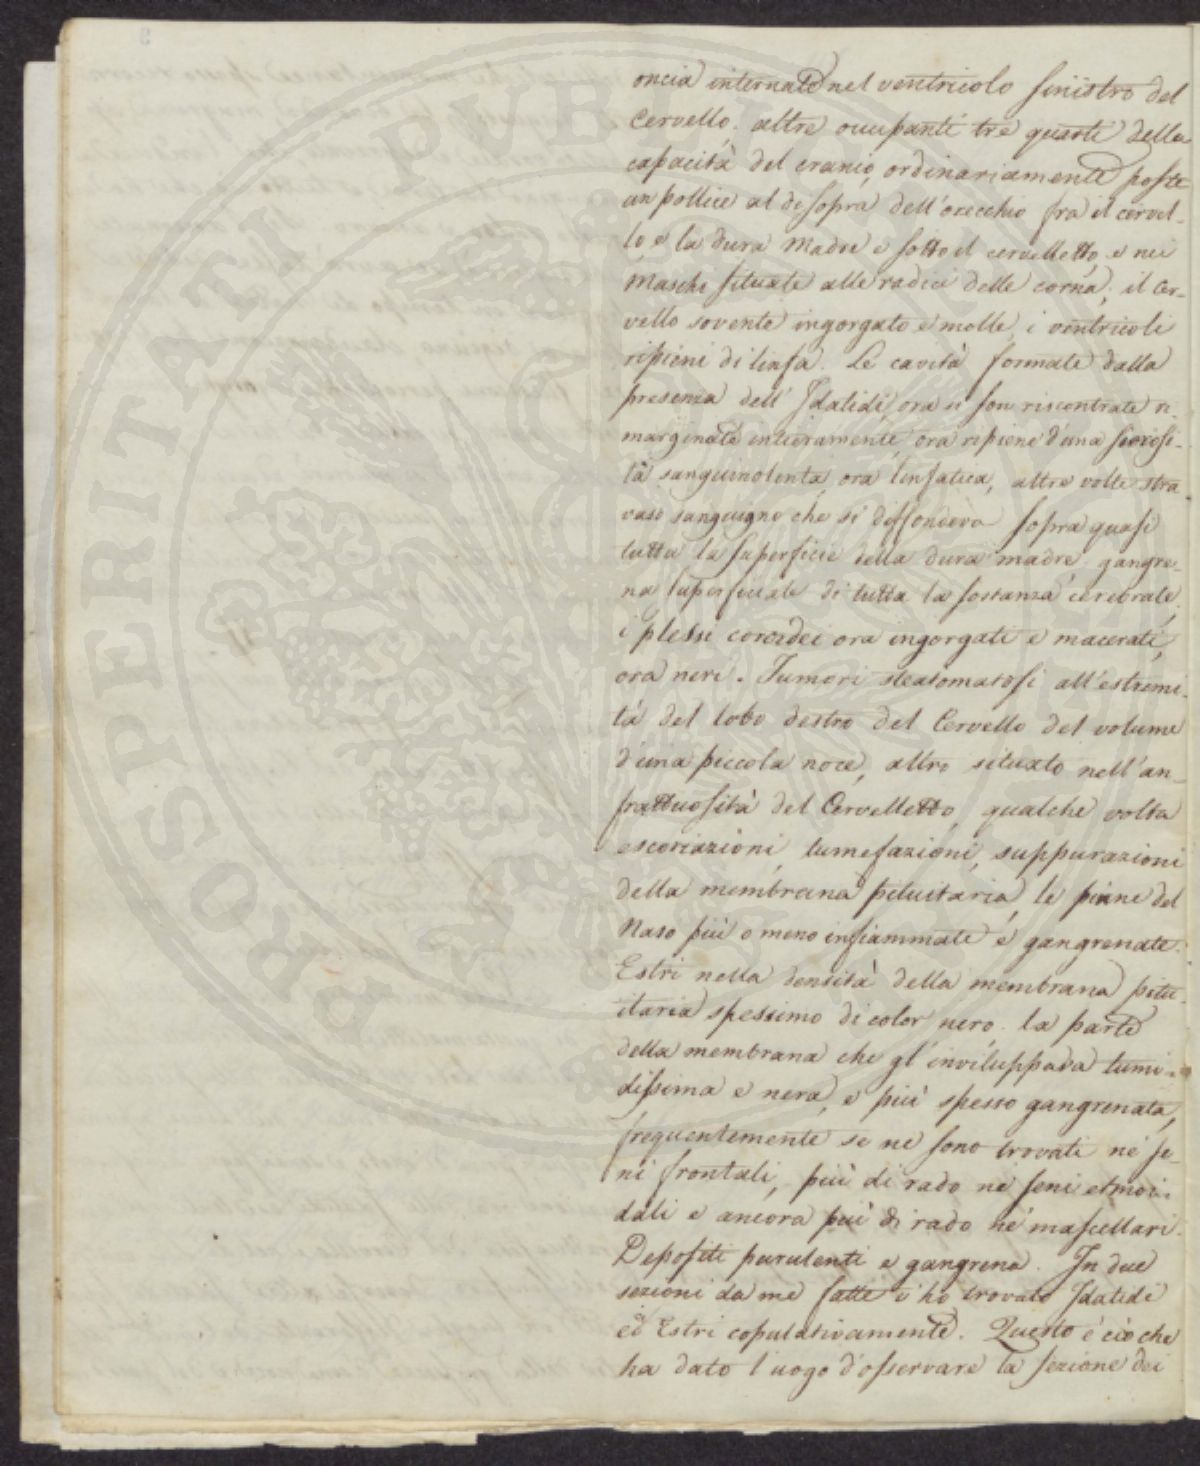 oncia internate nel ventricolo sinistro del
Cervello; altre occupanti tre quarti della
capacità del cranio, ordinariamente poste
un pollice al disopra dell'orecchio fra il cervel-
lo, e la dura Madre e sotto il cervelletto, e nei
Maschi situate alle radici delle corna; il Cer-
vello sovente ingorgato e molle, i ventricoli
ripieni di linfa. Le cavità formate dalla
presenza dell'Idatidi, ora si son riscontrate ri-
marginate intieramente, ora ripiene d'una sierosi-
tà sanguinolenta, ora linfatica, altre volte stra-
vaso sanguigno che si diffondeva sopra quasi
tutta la superficie della dura madre, gangre-
na superficiale di tutta la sostanza cerebrale,
i plessi coroidei ora ingorgati e macerati,
ora neri. Tumori steatomatosi all'estremi-
tà del lobo destro del Cervello del volume
d'una piccola noce, altro situato nell'an-
frattuosità del Cervelletto, qualche volta
escoriazioni, tumefazioni, suppurazioni
della membrana pituitaria, le pinne del
Naso più o meno infiammate e gangrenate.
Estri nella densità della membrana pitu-
itaria spessimo di color nero, la parte
della membrana che gl'inviluppava tumi-
dissima e nera, e più spesso gangrenata,
frequentemente se ne sono trovati ne' se-
ni frontali, più di rado ne' seni etmoi-
dali e ancora più di rado ne' mascellari.
Depositi purulenti e gangrena. In due
sezioni da me fatte v'ho trovato Idatidi
ed Estri copulativamente. Questo è ciò che
ha dato luogo d'osservare la sezione dei
PROSPERITATI PUBLICAE